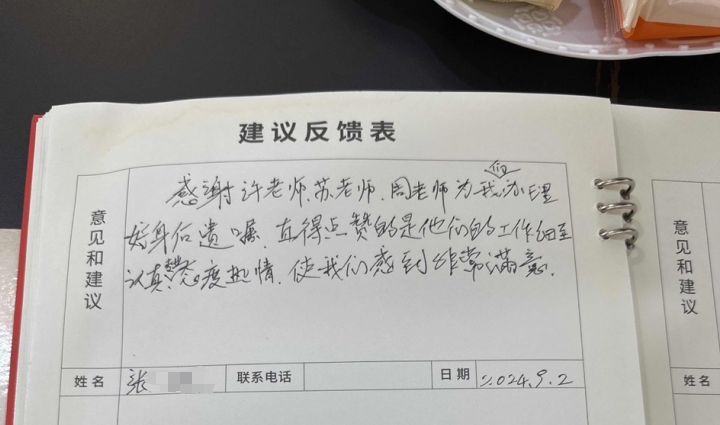 建议反馈表
意见和建议
感谢许老师、苏老师、周老师为我们办理
好身后遗嘱。直得点赞的是他们的工作细至
认真态度热情、使我们感到非常满意.
姓名 张 联系电话 日期 2024.9.2
意见和建议
姓名